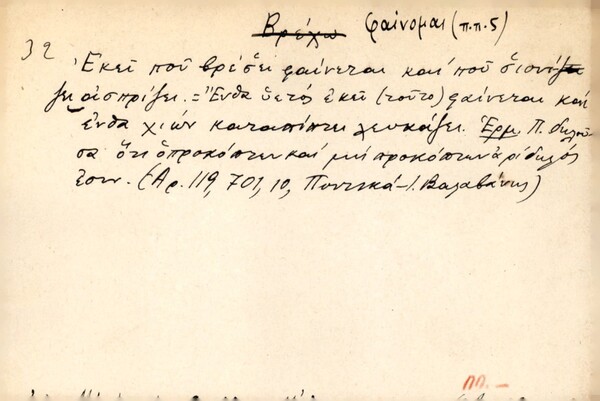 Βρέχω φαίνομαι (π.π.5)
32
Ἐκεῖ ποῦ βρέσ̌ει φαίνεται καί ποῦ σ̌ιονίζει
ζει ἀσπρίζει. = Ἔνθα ὑετός ἐκεῖ (τοῦτο) φαίνεται καί
ἔνθα χιών καταπίπτει λευκάζει. Ἑρμ. Π. δηλοῦ
σα ὅτι ὁ προκόπτων καί μή προκόπτων ἀρίδηλός
ἐστιν. (Ἀρ. 119, 701, 10, Ποντικά - Ι. Βαλαβάνης)